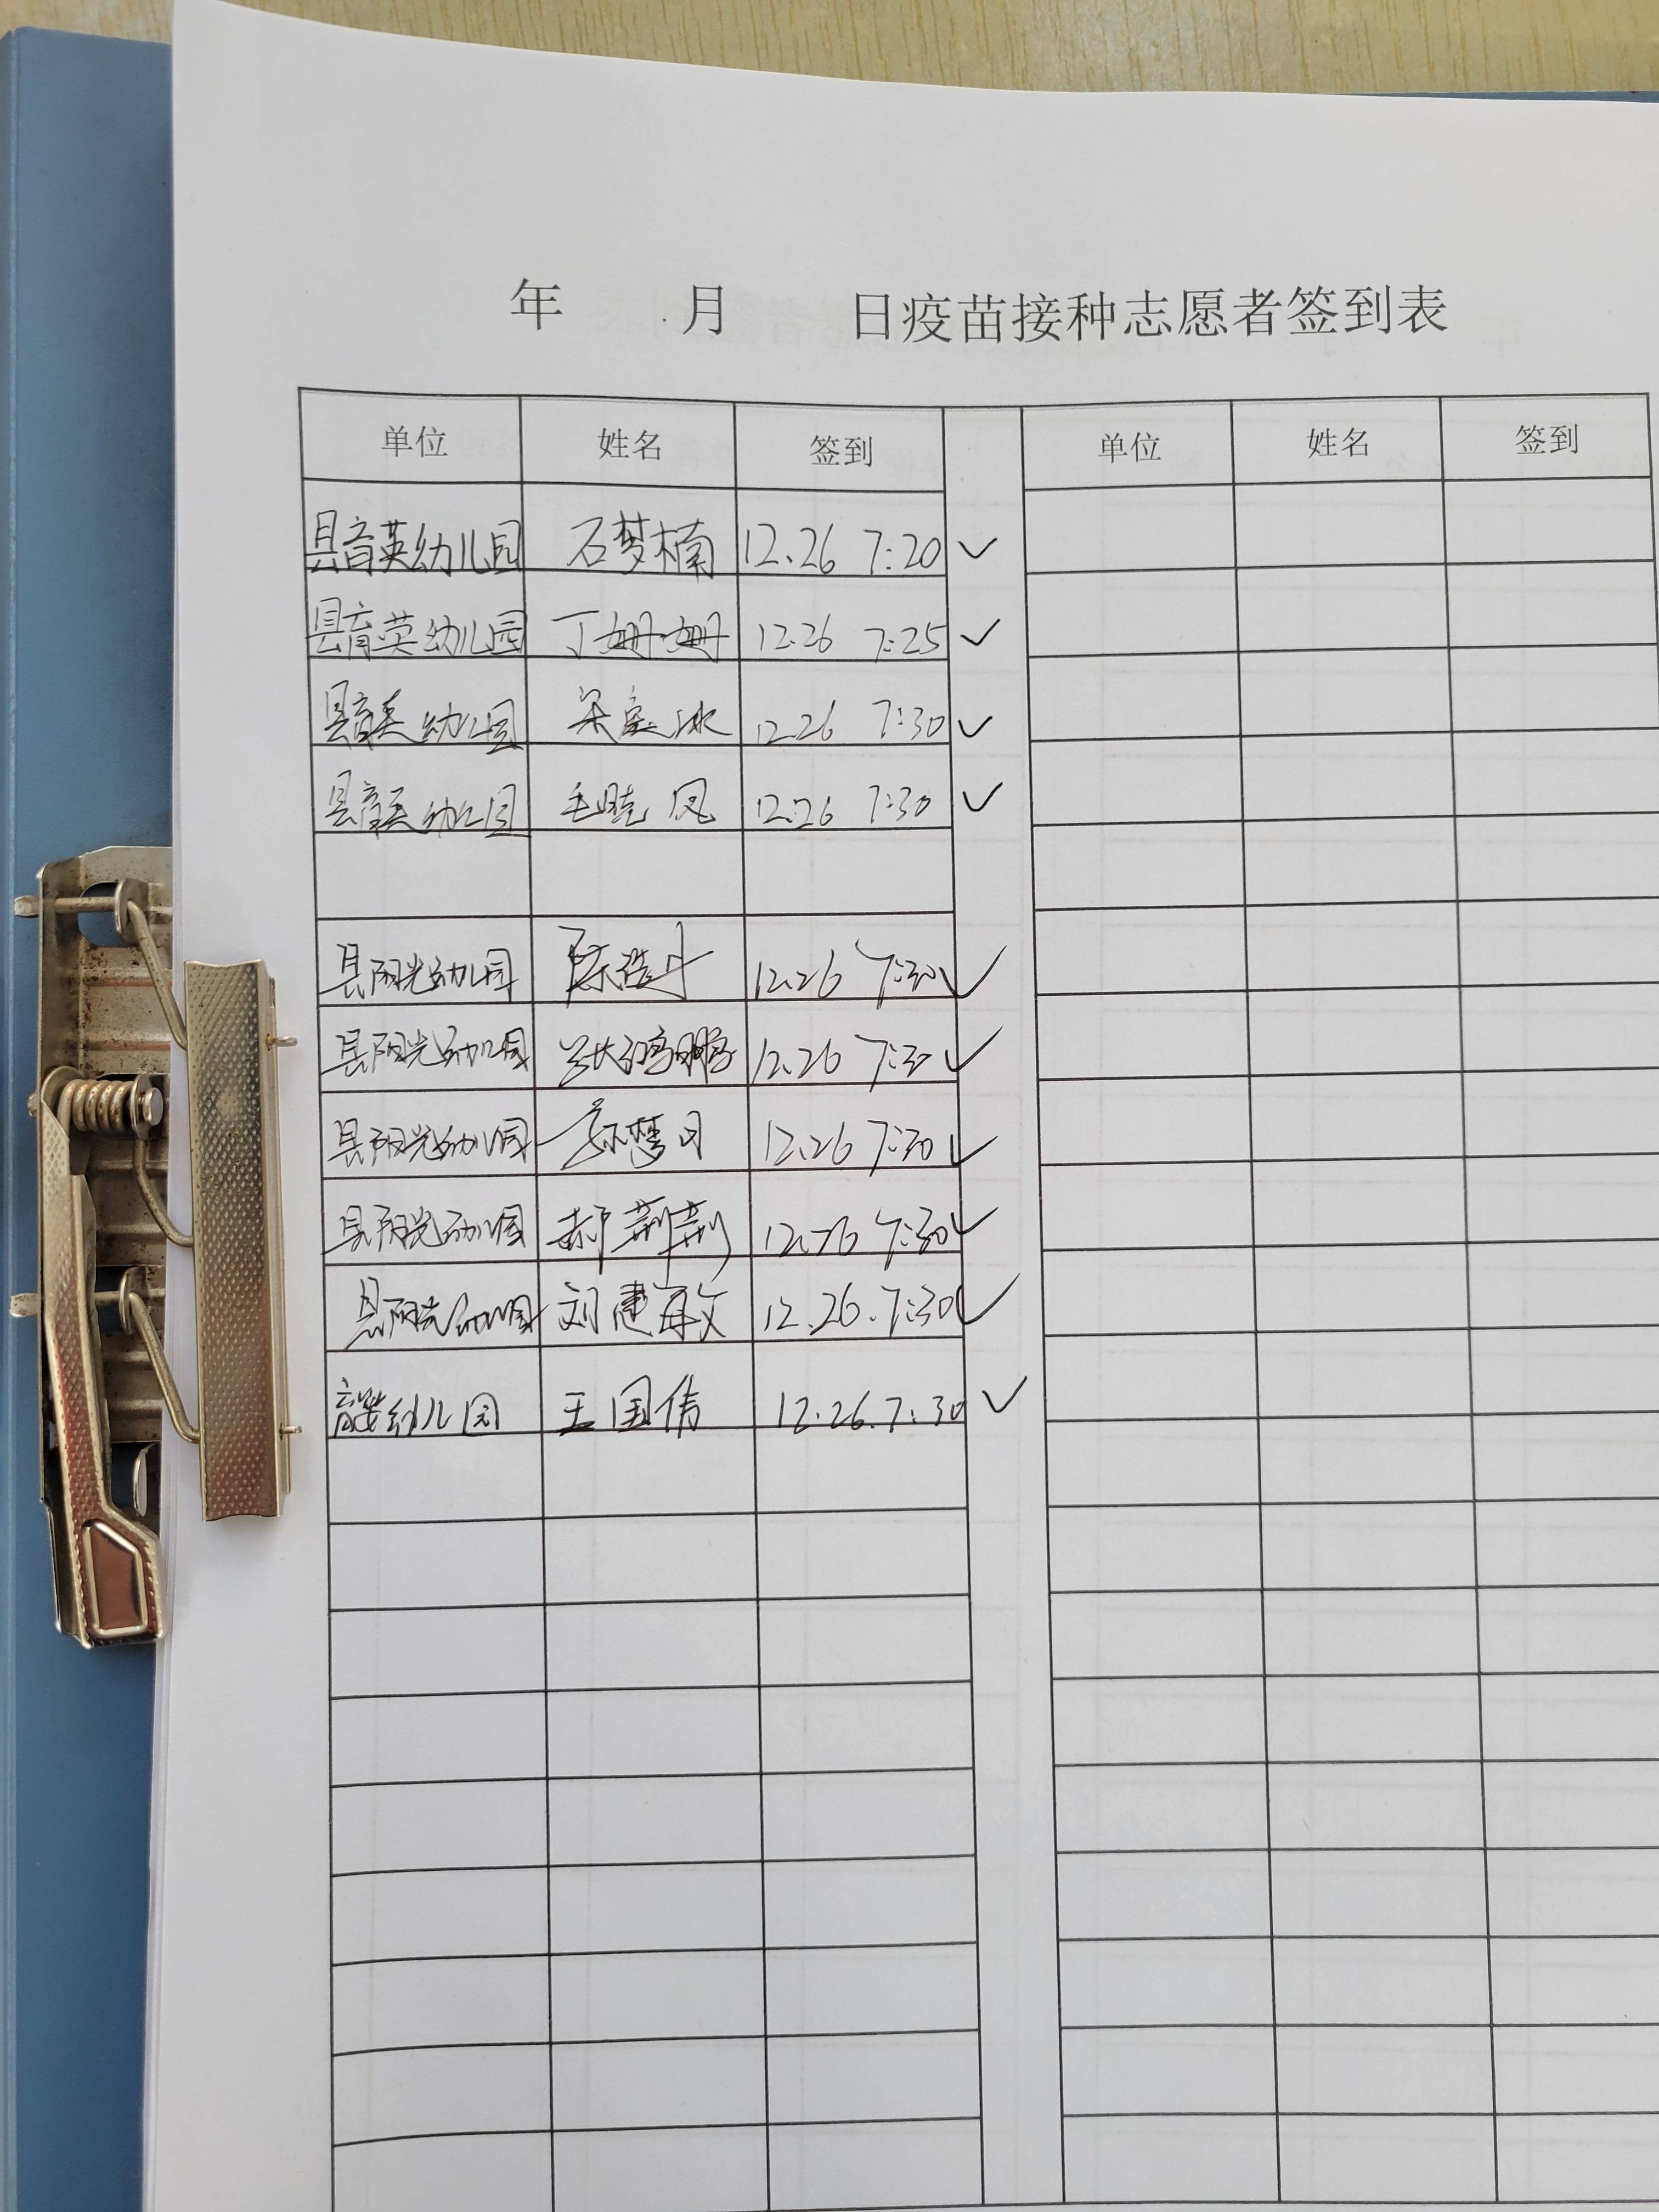 年 月 日疫苗接种志愿者签到表
单位 姓名 签到 单位 姓名 签到
县育英幼儿园 石梦楠 12.26 7:20 ✓
县育英幼儿园 丁姗姗 12.26 7:25 ✓
县育英幼儿园 12.26 7:30 ✓
县育英幼儿园 毛晓凤 12.26 7:30 ✓
县阳光幼儿园 陈浩斗 12.26 7:30 ✓
县阳光幼儿园 12.26 7:30 ✓
县阳光幼儿园 12.26 7:30 ✓
县阳光幼儿园 郝荆荆 12.26 7:30 ✓
县阳光幼儿园 刘建敏 12.26.7:30 ✓
育婴幼儿园 王国倩 12.26.7:30 ✓